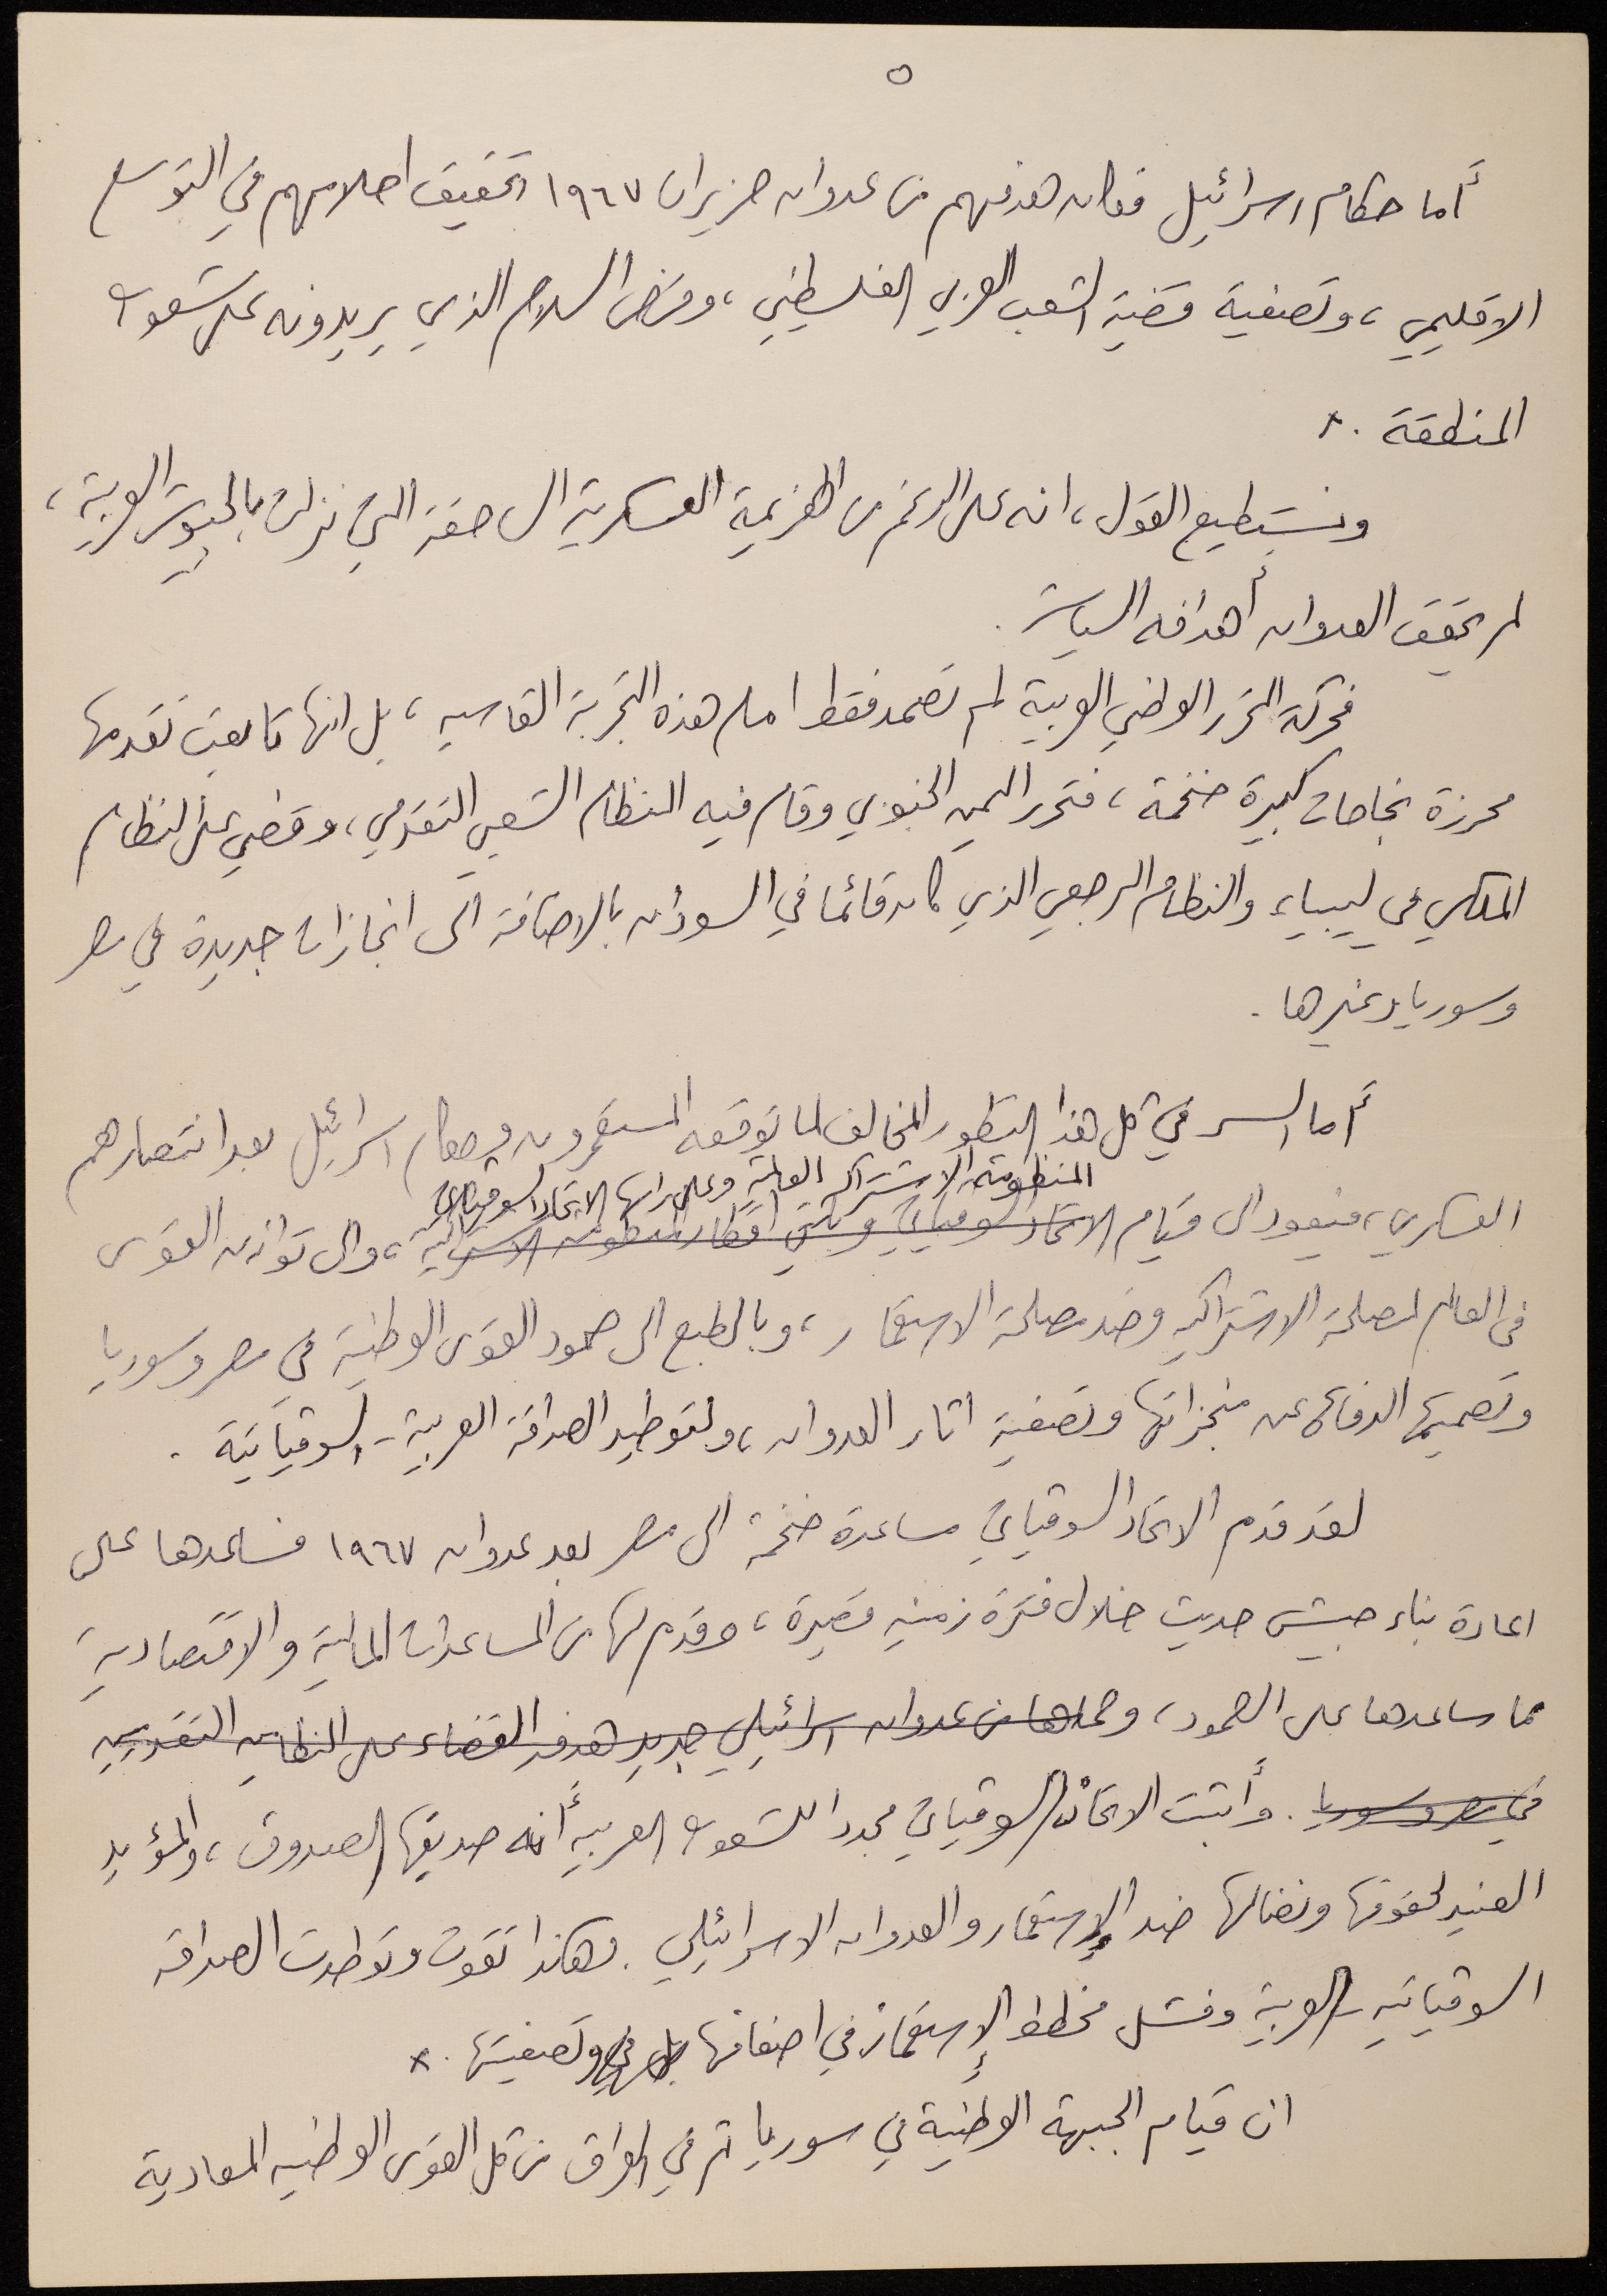 ٥
أما حكام اسرائيل فكان هدفهم من عدوان حزيران ١٩٦٧ تحقيق احلامهم في التوسع
الاقليمي، وتصفية قضية الشعب العربي الفلسطيني، وفرض السلام الذي يريدونه على شعوب
المنطقة .×
ونستطيع القول، انه على الرغم من الهزيمة العسكرية الساحقة التي نزلت بالجيوش العربية،
لم يحقق العدوان أهدافه السياسية.
فحركة التحرر الوطني العربية لم تصمد فقط امام هذه التجربة القاسيه، بل انها تابعت تقدمها
محرزة نجاحات كبيرة ضخمة، فتحرر اليمن الجنوبي وقام فيه النظام الشعبي التقدمي، وقضي على النظام
الملكي في ليبيا، والنظام الرجعي الذي كان قائما في السودان بالاضافة الى انجازات جديدة في مصر
وسوريا وغيرها.
أما السر في كل هذا التطور المخالف لما توقعه المستعمرون وحكام اسرائيل بعد انتصارهم
المنظومة الاشتراكية العالمية وعلى راسها الاتحاد السوفياتي
العسكري، فيعود الى قيام الاتحاد السوفياتي وباقي اقطار المنظومه الاشتراكية، والى توازن القوى
في العالم لمصلحة الاشتراكيه وضد مصلحة الاستعمار، وبالطبع الى صمود القوى الوطنية في مصر وسوريا
وتصميمها الدفاع عن منجزاتها وتصفية اثار العدوان، ولتوطيد الصداقة العربية - السوفياتية.
لقد قدم الاتحاد السوفياتي مساعدة ضخمة الى مصر بعد عدوان ١٩٦٧ فساعدها على
اعادة بناء جيش حديث خلال فترة زمنيه قصيرة، وقدم لها من المساعدات المالية والاقتصادية
مما ساعدها على الصمود، وحماها من عدوان اسرائيلي جديد هدفه القضاء على النظامين التقدميين
في مصر وسوريا. وأثبت الاتحاد السوفياتي مجددا للشعوب العربيه أنه صديقها الصدوق، والمؤيد
العنيد لحقوقها ونضالها ضد الإستعمار والعدوان الاسرائيلي. وهكذا تقوت وتوطدت الصداقه
السوفياتيه العربية وفشل مخطط الإستعمار في اضعافها وتصفيتها .×
ان قيام الجبهة الوطنية في سوريا ثم في العراق من كل القوى الوطنيه المعادية